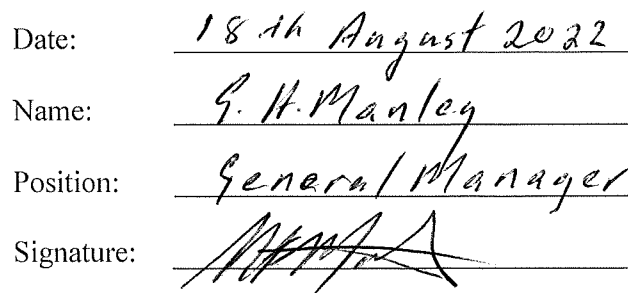 Date: 18th August 2022
Name: G. H. Manley
Position: General Manager
Signature: